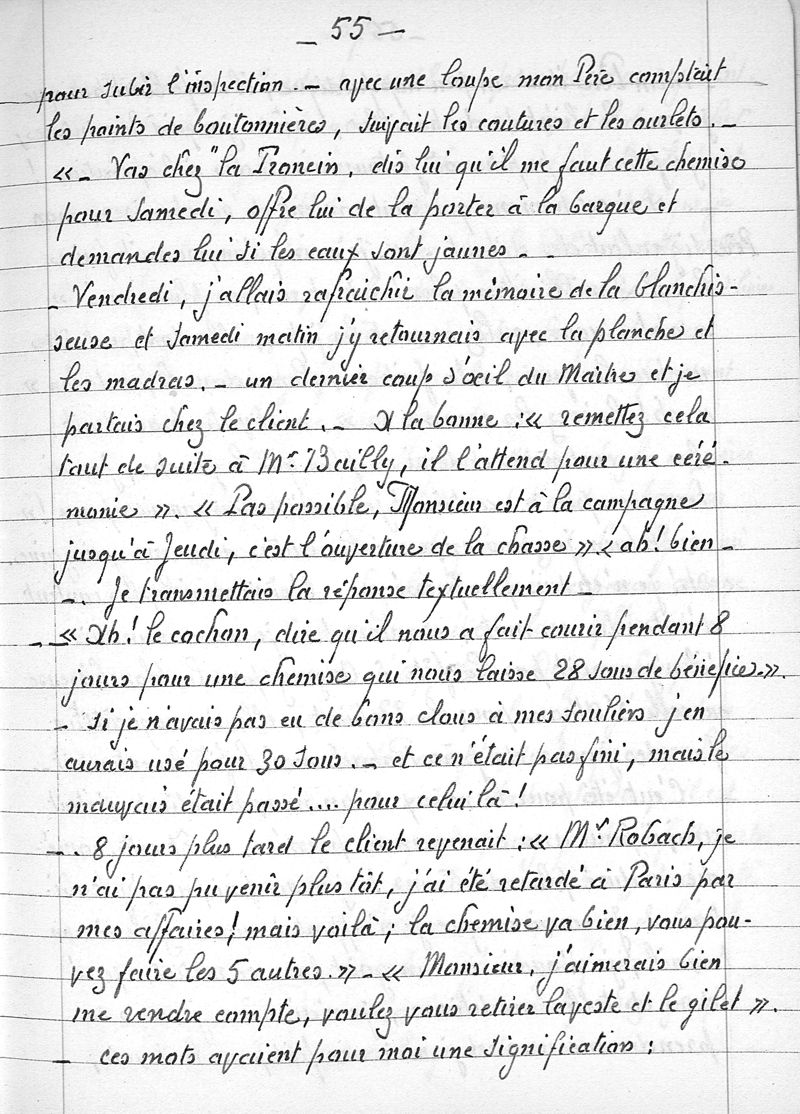 _ 55 _
pour subir l'inspection. _ avec une loupe mon Père comptait
les points de boutonnières, suivait les coutures et les ourlets. _
«_ Vas chez "la Troncin, dis lui qu'il me faut cette chemise
pour Samedi, offre lui de la porter à la barque et
demandes lui si les eaux sont jaunes _ _
_ Vendredi, j'allais rafraichir la mémoire de la blanchis-
seuse et Samedi matin j'y retournais avec la planche et
les madras. _ un dernier coup d'oeil du Maitre et je
partais chez le client. _ A la bonne : « remettez cela
tout de suite à Mr Bailly, il l'attend pour une céré-
monie ». « Pas possible, Monsieur est à la campagne
jusqu'à Jeudi, c'est l'ouverture de la chasse » « ah! bien _
_. Je transmettais la réponse textuellement _
_ « Ah! le cochon, dire qu'il nous a fait courir pendant 8
jours pour une chemise qui nous laisse 28 sous de bénéfice. ».
_ Si je n'avais pas eu de bons clous à mes souliers j'en
aurais usé pour 30 sous. _ et ce n'était pas fini, mais le
mauvais était passé .... pour celui là !
_. 8 jours plus tard le client revenait : « Mr Robach, je
n'ai pas pu venir plus tôt, j'ai été retardé à Paris par
mes affaires! mais voilà; la chemise va bien, vous pou-
vez faire les 5 autres. » _ « Monsieur, j'aimerais bien
me rendre compte, voulez vous retirer la veste et le gilet ».
_ ces mots avaient pour moi une signification :